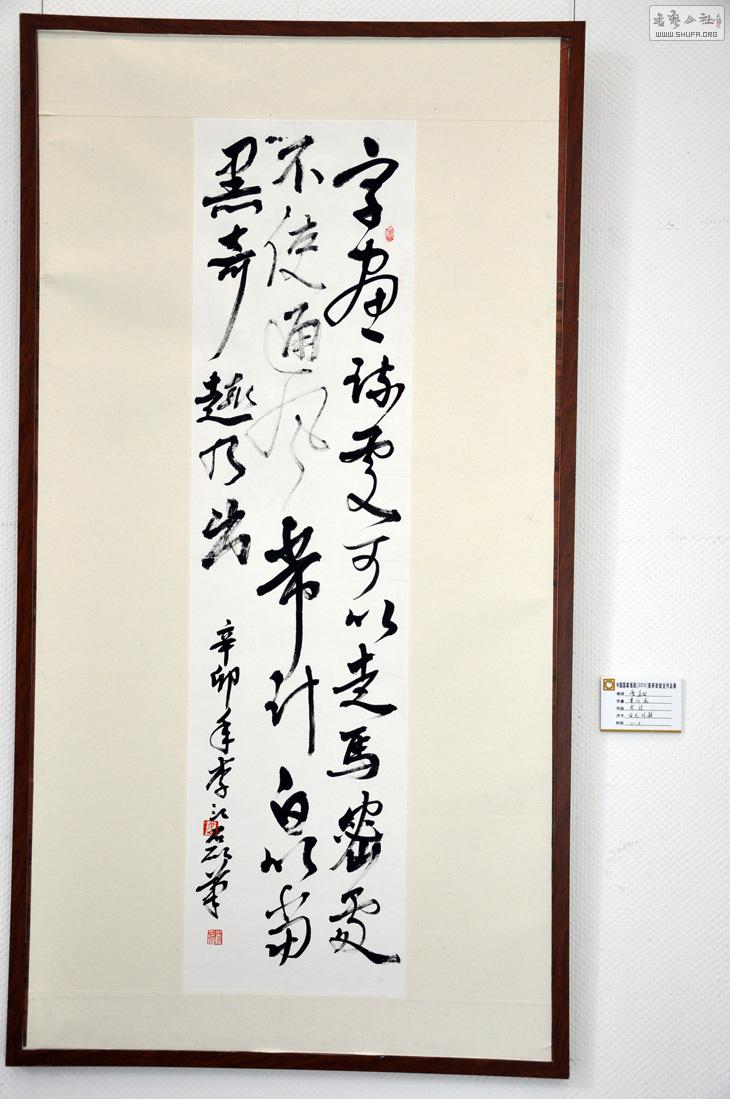 字画疏处可以走马密处
不使通风常计白以当
黑奇趣乃出
辛卯年李江
筆
书艺公社
WWW.SHUFA.ORG
中国国家画院(2010)
作品展
作者
作品
尺寸
时间